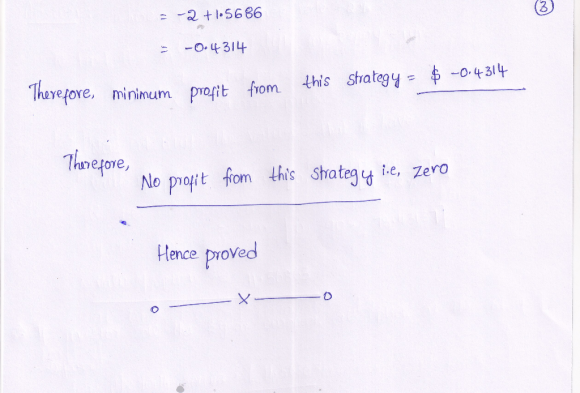 ③
= -2 + 1.5686
= -0.4314
Therefore, minimum profit from this strategy = $ -0.4314
Therefore,
No profit from this strategy i.e, zero
Hence proved
o — x — o